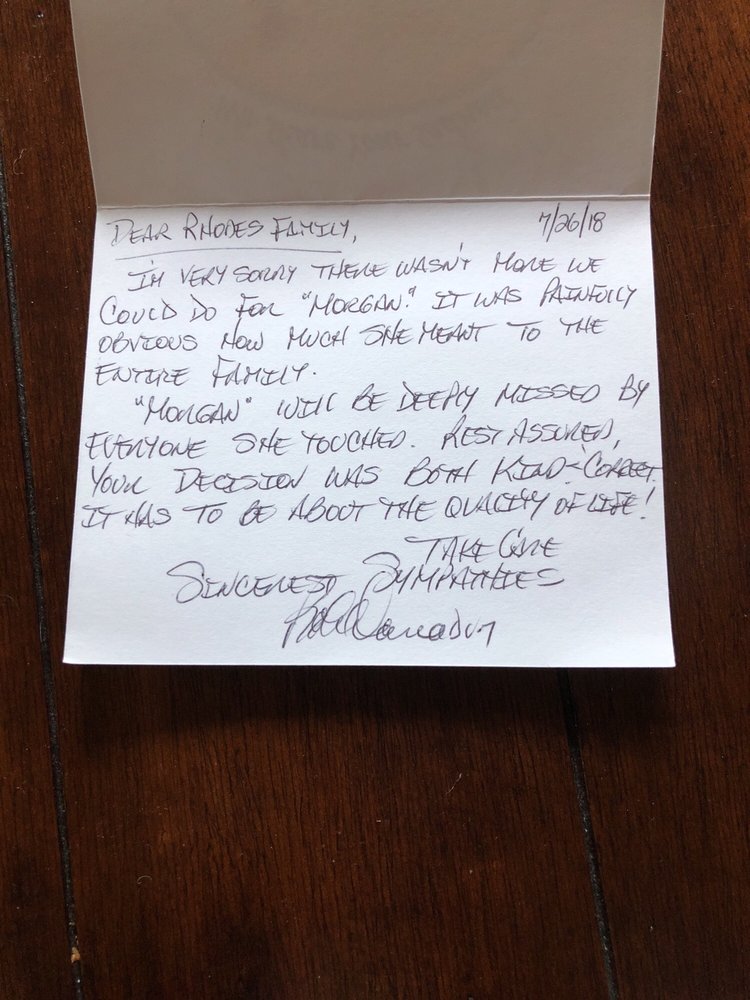 DEAR RHODES FAMILY, 7/26/18
I'M VERY SORRY THERE WASN'T MORE WE
COULD DO FOR "MORGAN". IT WAS PAINFULLY
OBVIOUS HOW MUCH SHE MEANT TO THE
ENTIRE FAMILY.
"MORGAN" WILL BE DEEPLY MISSED BY
EVERYONE SHE TOUCHED. REST ASSURED,
YOUR DECISION WAS BOTH KIND & CORRECT.
IT HAS TO BE ABOUT THE QUALITY OF LIFE!
TAKE CARE
SINCEREST SYMPATHIES